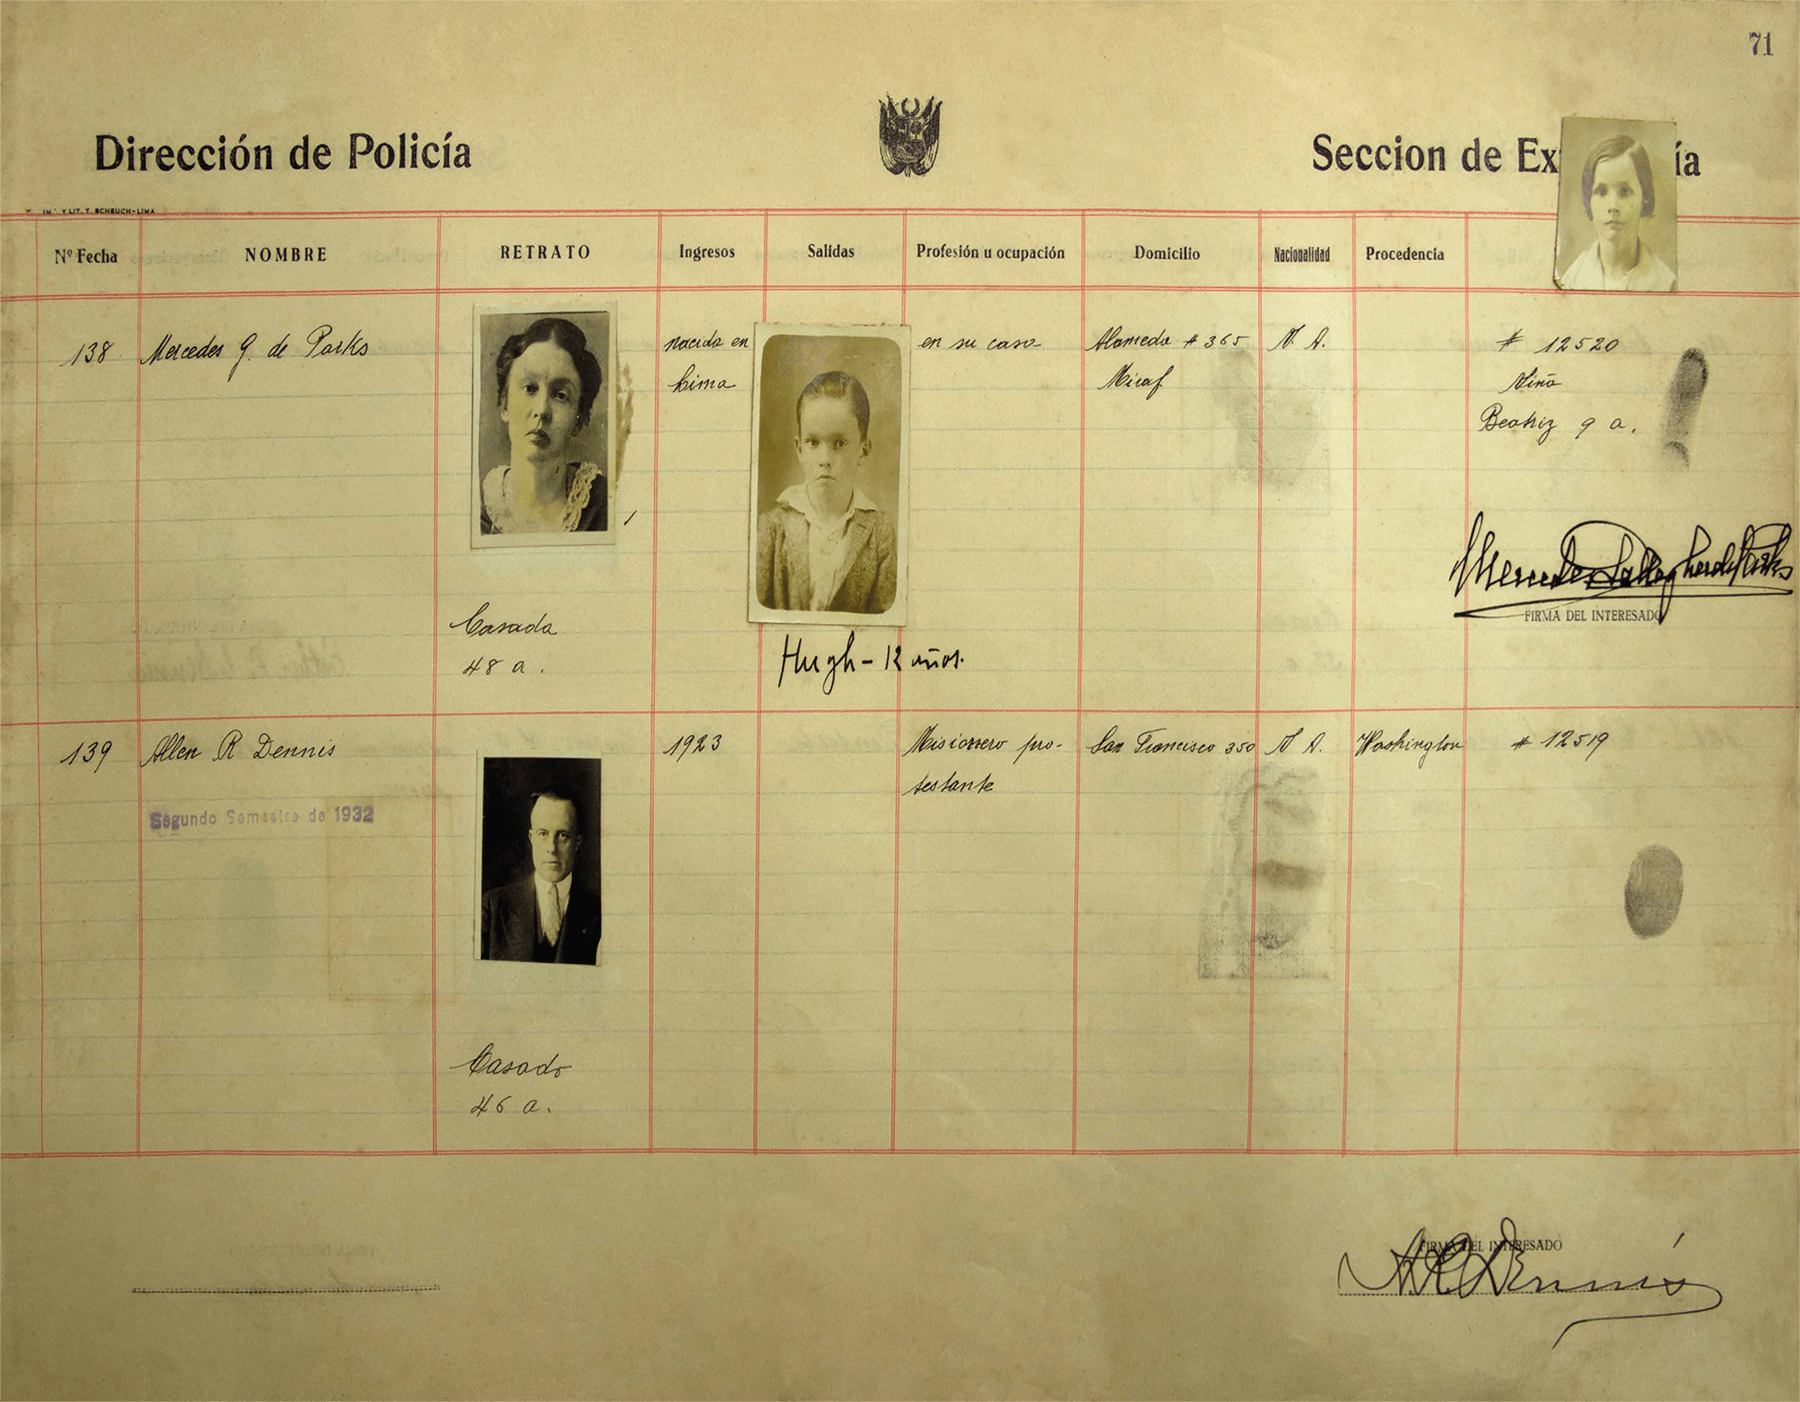 71
Dirección de Policía
Seccion de Ex ía
Y LIT. T. SCHEUCH-LIMA
Nº Fecha
NOMBRE
RETRATO
Ingresos
Salidas
Profesión u ocupación
Domicilio
Nacionalidad
Procedencia
138
Mercedes G. de Parks
nacida en
Lima
en su casa
Alameda # 365
Miraf
N. A.
# 12520
Niña
Beatriz 9 a.
Mercedes Gallagher de Parks
FIRMA DEL INTERESADO
Casada
48 a.
Hugh - 12 años.
139
Allen R Dennis
1923
Misionero pro-
testante
San Francisco 350
N. A.
Washington
# 12519
Segundo Semestre de 1932
Casado
46 a.
FIRMA DEL INTERESADO
A R Dennis